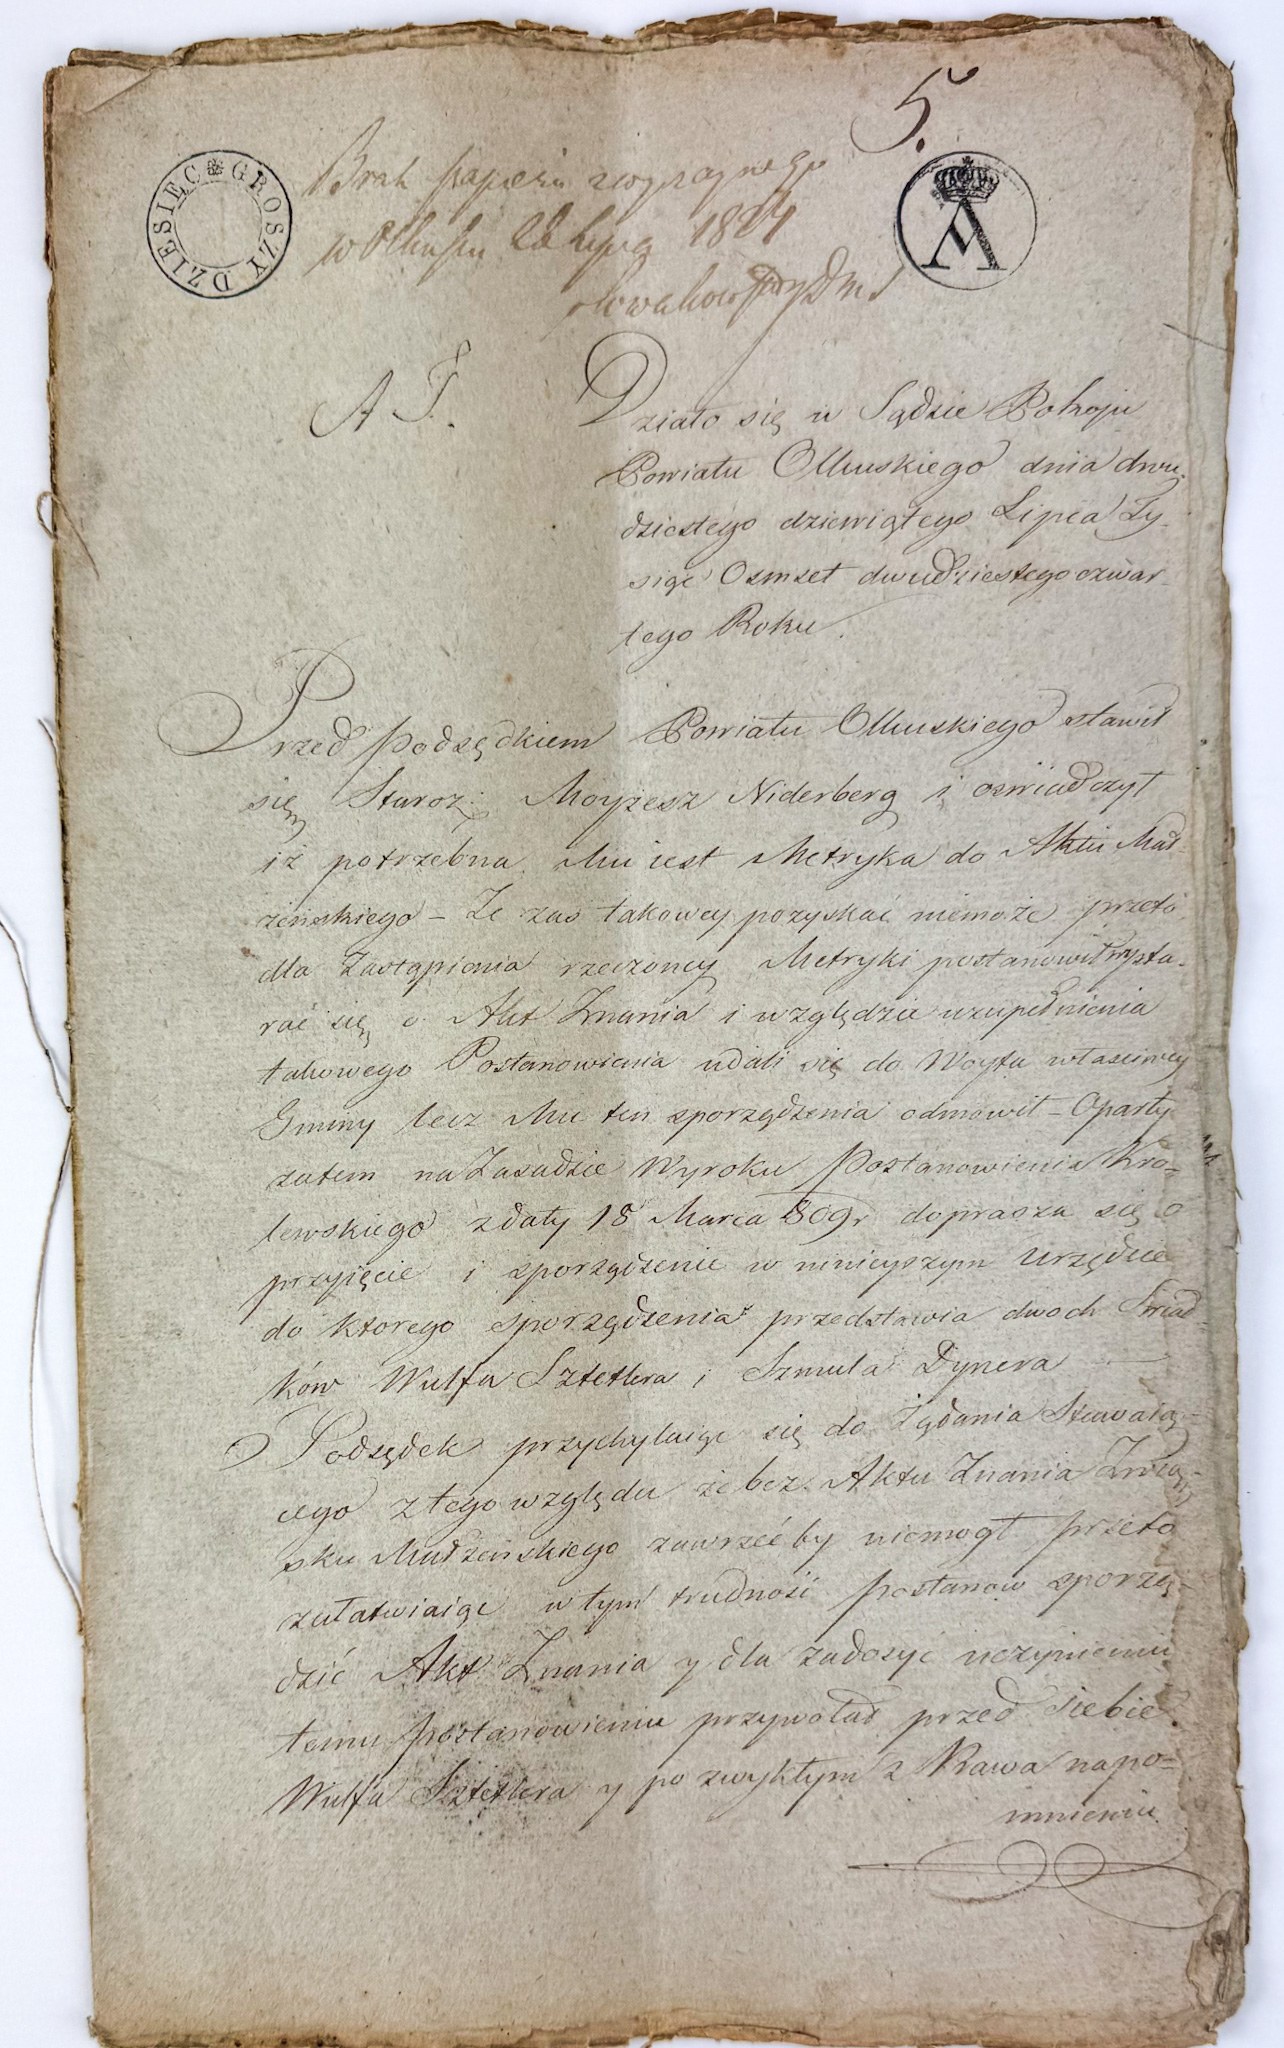 5.
DZIESIĘC GROSZY
A
Brak papieru zwyczaynego
w Olkuszu 28 Lipca 1824
A T.
Działo się w Sądzie Pokoju
Powiatu Olkuskiego dnia dwu-
dziestego dziewiątego Lipca Ty-
siąc Osmset dwudziestego czwar-
tego Roku.
Przed Podsędkiem Powiatu Olkuskiego stawił
się Staroz: Moyżesz Niderberg i oswiadczył
iż potrzebna Mu iest Metryka do Aktu Mał-
żeńskiego – Ze zas takowey pozyskać niemoże przeto
dla Zastąpienia rzeczoney Metryki postanowił wysta-
rać się o Akt Znania i względzie uzupełnienia
takowego Postanowienia udali się do Woyta własciwey
Gminy lecz Mu ten sporządzenia odmowił – Oparty
zatem na Zasadzie Wyroku Postanowienia Kro-
lewskiego z daty 18 Marca 809 r doprasza się o
przyięcie i sporządzenie w ninieyszym Urzędzie
do ktorego sporządzenia przedstawia dwoch Swiad-
ków Wulfa Sztetlera i Szmula Dynera —
Podsędek przychylaiąc się do Żądania Stawaią-
cego z tego względu że bez Aktu Znania Zwią-
sku Małżeńskiego zawrzeć by niemogł przeto
załatwiaiąc w tym trudność postanow sporzą-
dzić Akt Znania y dla zadosyć uczynieniu
temu postanowieniu przywołał przed siebie
Wulfa Sztetlera y po zwykłym z Prawa napo-
mnieniu